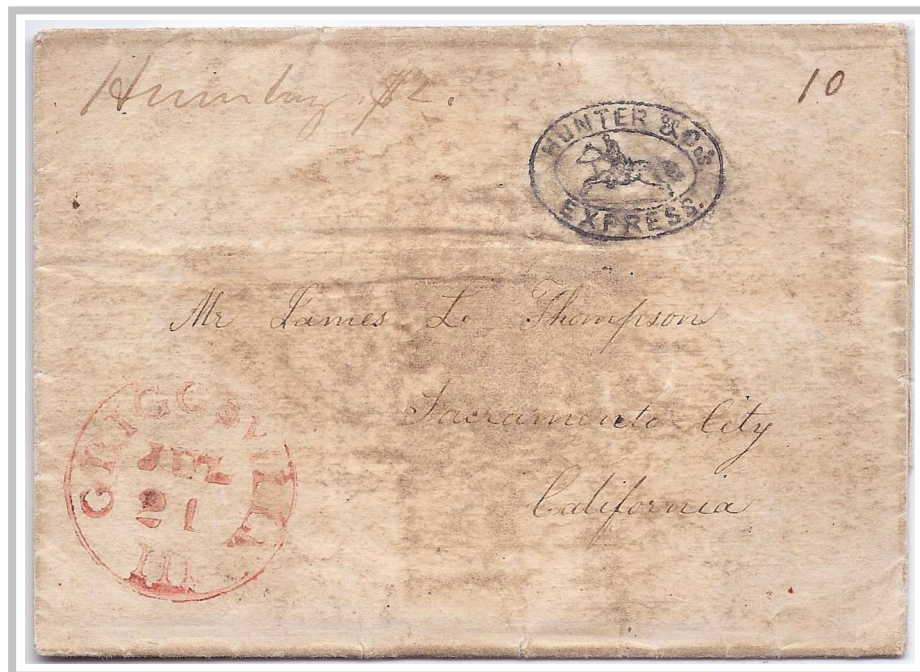 $2.
10
HUNTER & Co's
EXPRESS.
Mr James L. Thompson
Sacramento City
California
GRIGGSVILLE
JUL
21
Ill.